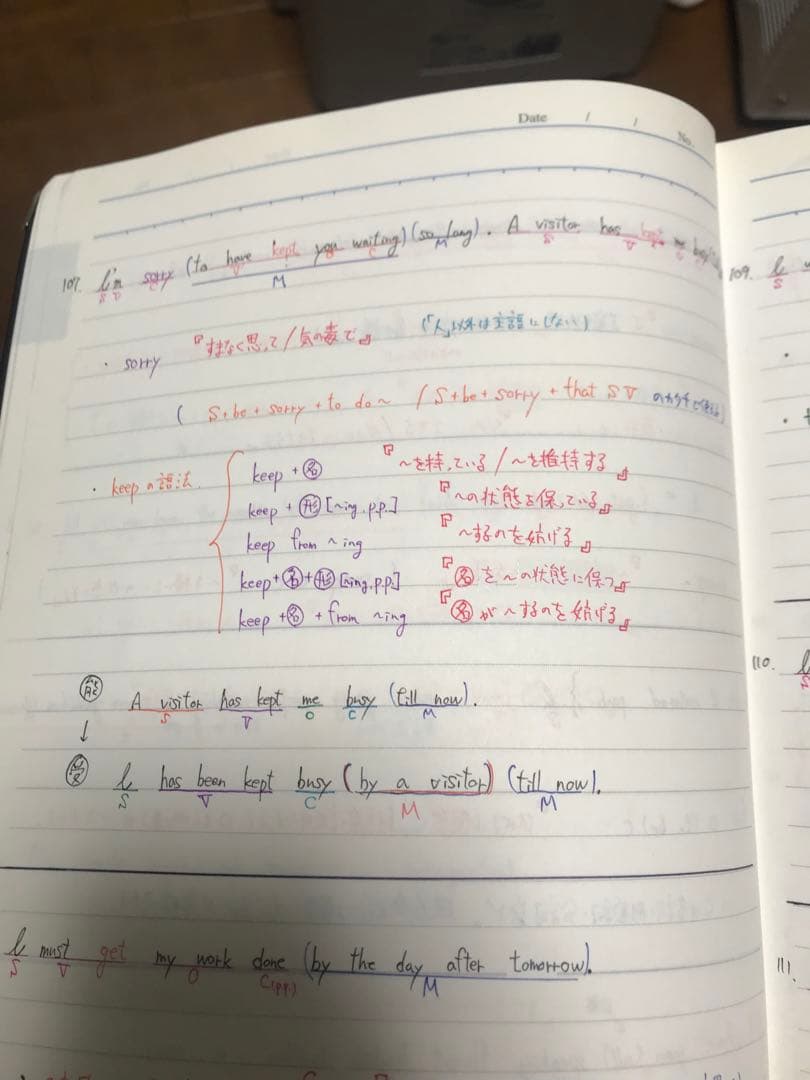 Date / / No.
107. I'm sorry (to have kept you waiting) (so long). A visitor has kept me busy
S V C V O C M S V O
M
・sorry 『すまなく思って/気の毒で』 (「人」以外は主語にしない)
( S+be+sorry+to do~ / S+be+sorry+that SV のカタチで
・keepの語法
keep+名 『~を持っている/~を維持する』
keep+形[~ing.p.p.] 『~の状態を保っている』
keep from ~ing 『~するのを妨げる』
keep+名+形[~ing.p.p.] 『名を~の状態に保つ』
keep+名+from ~ing 『名が~するのを妨げる』
能 A visitor has kept me busy (till now).
S V O C M
↓
受 I has been kept busy (by a visitor) (till now).
S V C M M
I must get my work done (by the day after tomorrow).
S V O C(p.p.) M
109. I
S
110. I
S
111.